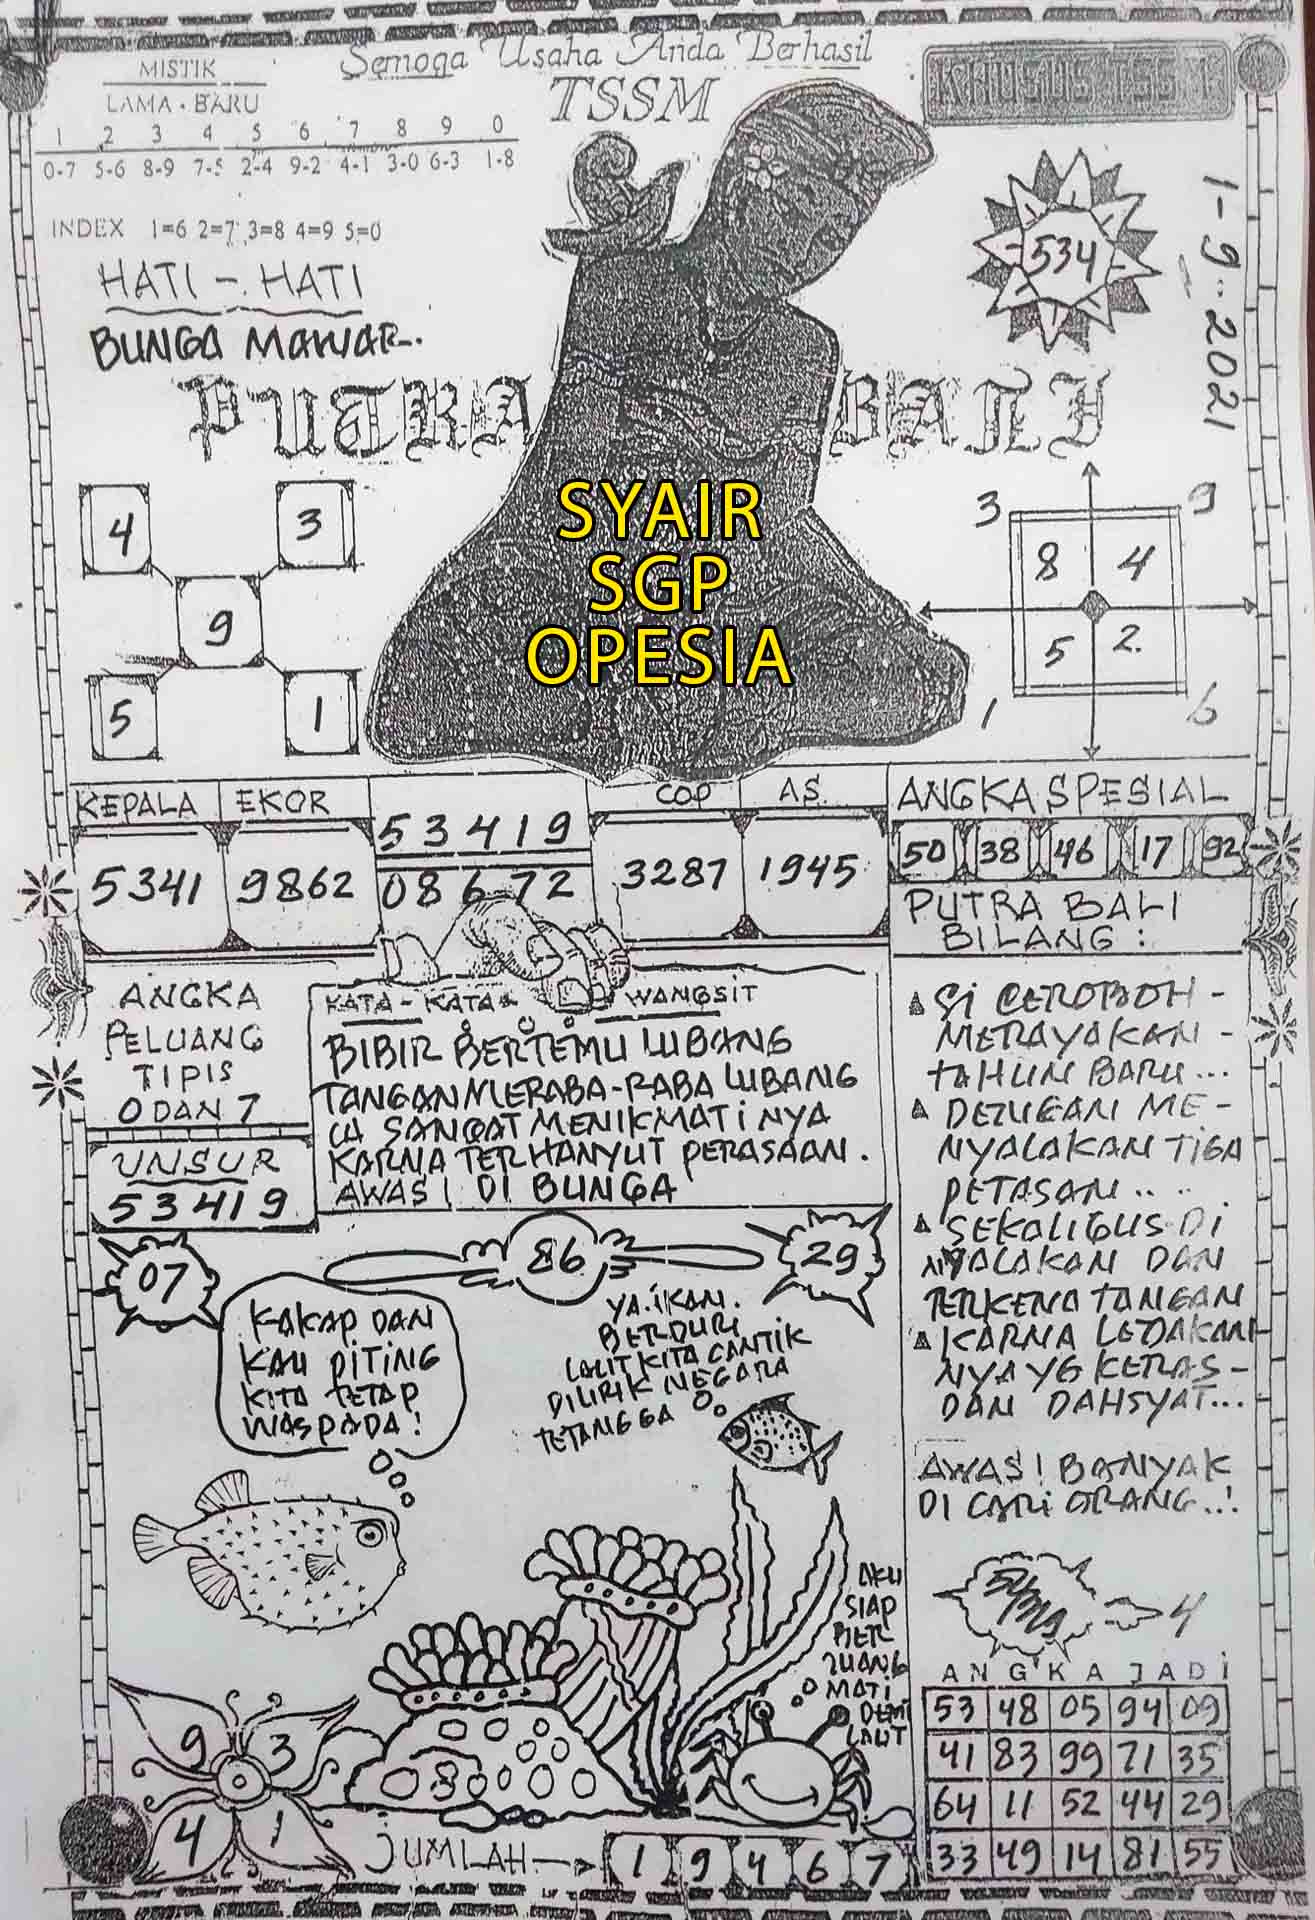 Semoga Usaha Anda Berhasil
TSSM
MISTIK
LAMA - BARU
1 2 3 4 5 6 7 8 9 0
0-7 5-6 8-9 7-5 2-4 9-2 4-1 3-0 6-3 1-8
INDEX 1=6 2=7 3=8 4=9 5=0
HATI - HATI
BUNGA MAWAR..
KHUSUS TSSM
534
1-9-2021
PUTRA BALI
SYAIR
SGP
OPESIA
4 3
9
5 1
3 9
8 4
5 2.
1 6
KEPALA EKOR
5341 9862
53419
08672
COP AS
3287 1945
ANGKA SPESIAL
50 38 46 17 92
PUTRA BALI
BILANG :
SI CEROBOH -
MERAYAKAN -
TAHUN BARU...
DENGAN ME -
NYALAKAN TIGA
PETASAN....
SEKALIGUS DI
NYALAKAN DAN
TERKENA TANGAN
KARNA LEDAKAN
NYA YG KERAS -
DAN DAHSYAT...
AWAS! BANYAK
DI CARI ORANG..!
ANGKA
PELUANG
TIPIS
0 DAN 7
UNSUR
53419
KATA - KATA WANGSIT
BIBIR BERTEMU LUBANG
TANGAN MERABA-RABA LUBANG
IA SANGAT MENIKMATINYA
KARNA TERHANYUT PERASAAN.
AWAS! DI BUNGA
07
86
29
KAKAP DAN
KAU PITING
KITA TETAP
WASPADA!
YA.IKAN.
BERDURI
LAUT KITA CANTIK
DILIRIK NEGARA
TETANGGA
AKU
SIAP
BER
JUANG
MATI
DEMI
LAUT
9 3
4 1
8
JUMLAH
1 9 4 6 7
4
ANGKA JADI
53 48 05 94 09
41 83 99 71 35
64 11 52 44 29
33 49 14 81 55